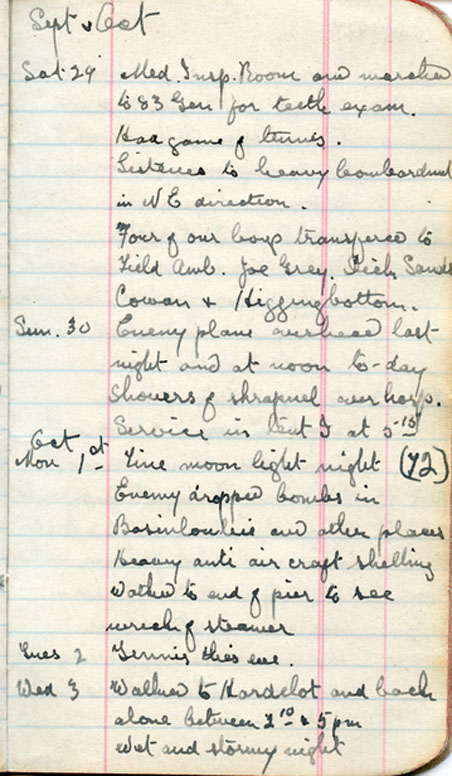 Sept & Oct
Sat. 29 Med. Insp. Room and marched
to 83 Gen for teeth exam.
Had game of tennis.
Listened to heavy bombardment
in NE direction.
Four of our boys transfered to
Field Amb. Joe Grey. Dick Sands
Cowan & Higginbottom.
Sun. 30 Enemy plane overhead last
night and at noon to-day
Showers of shrapnel over hosp.
Service in tent I at 5-15
Oct
Mon 1st Fine moon light night (72)
Enemy dropped bombs in
and other places
Heavy anti air craft shelling
Walked to end of pier to see
wreck of steamer
Tues 2 Tennis this eve.
Wed 3 Walked to Hardelot and back
alone between 2 10 & 5 pm
Wet and stormy night